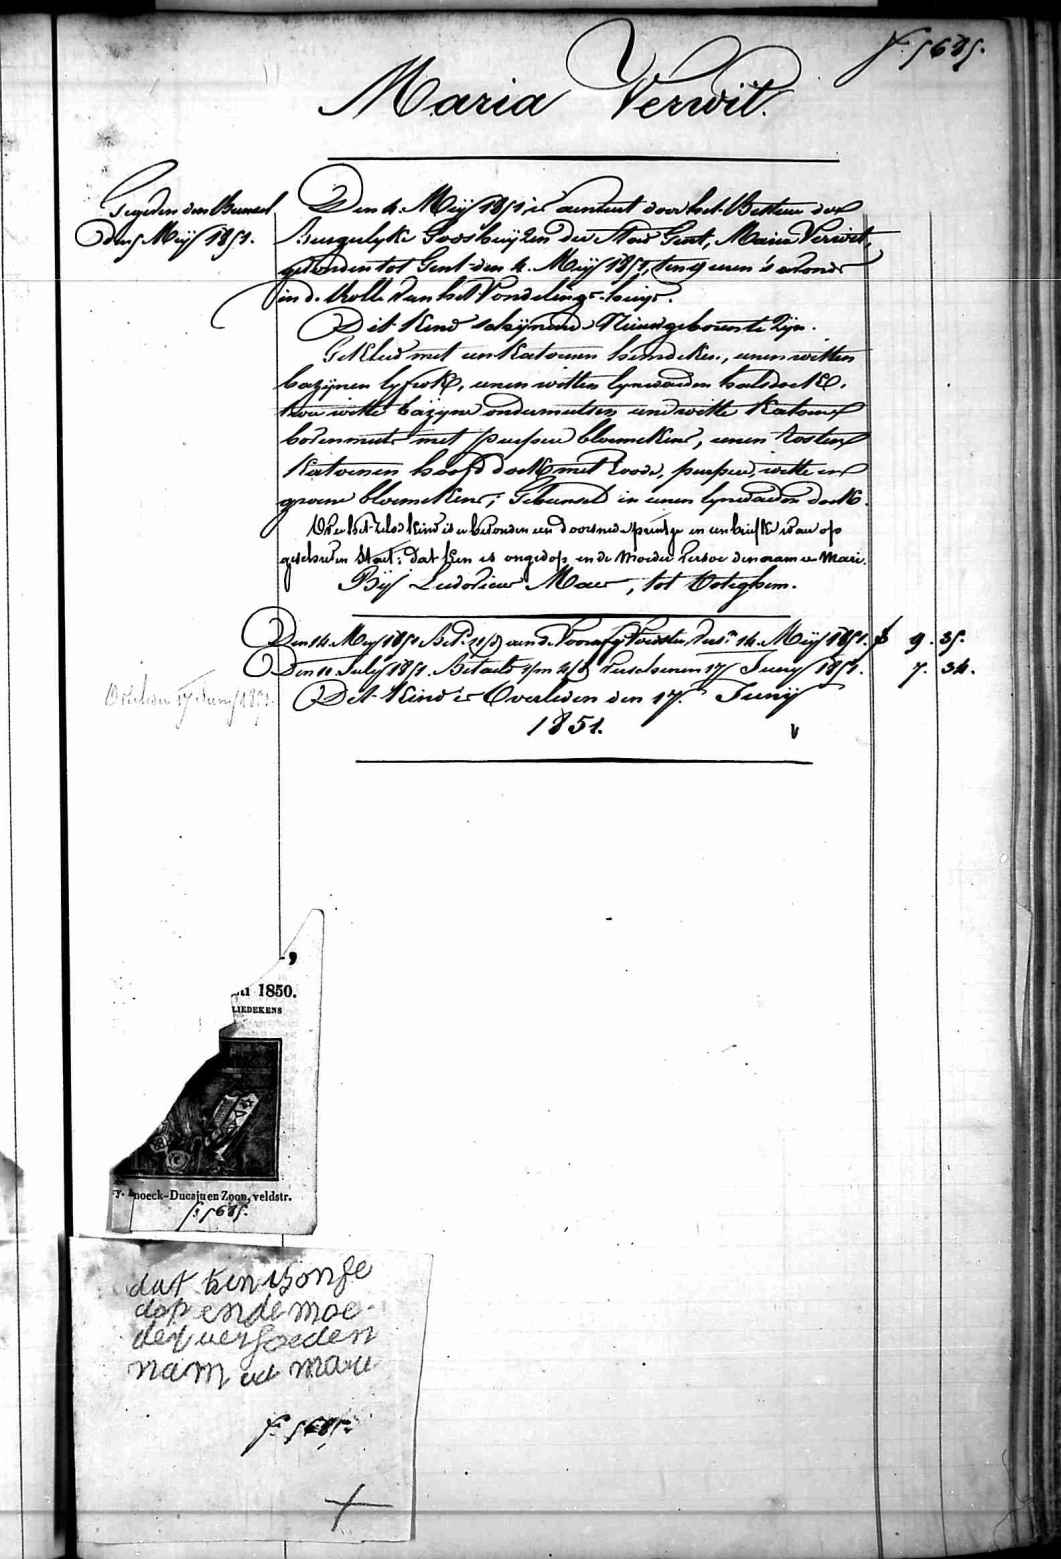 f. 5685.
Maria Verwit.
Gegeven den Bunsel
den 5 Meij 1851.
Den 4. Meij 1851, is aenveert door het Bestuer der
Burgelyke Godshuijzen der Stad Gent, Maria Verwit,
gevonden tot Gent den 4. Meij 1851, ten 9 uren 's avonds
in de Rolle van het Vondelings-huijs.
Dit Kind schijnende Nieuwgeboren te zijn.
Gekleed met een Katoenen hemdeken, eenen witten
bazijnen lijfrok, eenen witten lynwaeden halsdoek,
twee witte bazijne ondermutsen eene witte Katoene
bovenmuts met purper bloemekens, eenen rosten
Katoenen hoofddoek met roode, purper, witte en
groene bloemekens; Gebunseld in eenen lynwaeden doek.
Over het zelve Kind is er bevonden een doorsnede printje en een briefke waer op
geschreven staet: dat ken is ongedop, en de moeder versoe den naem va Marie.
Bij Ludovicus Maes, tot
Den 14. Meij 1851 Bet. aen de Voorsz. Voedster, 14. Meij 1851. f 9. 35.
Den 11 Julij 1851. Betaelt verschenen 17 Junij 1851. 7. 34.
Overleden 17 Junij 1851.
Dit Kind is Overleden den 17. Junij
1851.
1850.
LIEDEKENS
noeck-Ducaju en Zoon, veldstr.
f. 5685.
dat ken is onge
dop en de moe-
der versoeden
nam va marie
f. 5685.